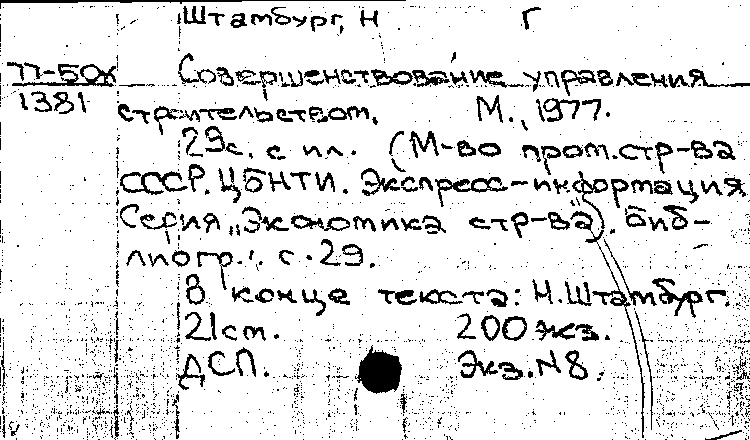 Штамбург, Н Г
77-50х Совершенствование управления
1381 строительством. М., 1977.
29с. с ил. (М-во пром.стр-ва
СССР. ЦБНТИ. Экспресс-информация
Серия „Экономика стр-ва"). Биб-
лиогр.: с.29.
В конце текста: Н.Штамбург.
21см. 200экз.
ДСП. Экз.N8.